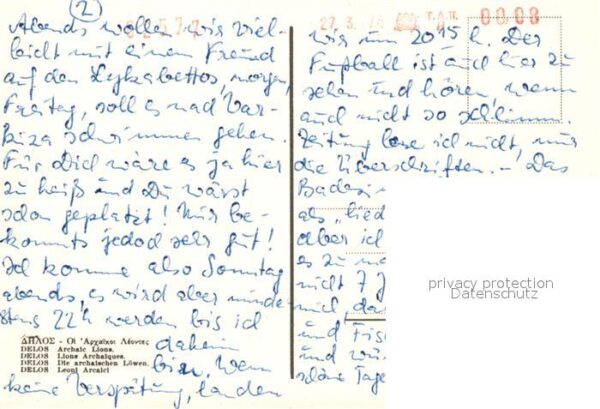 (2)
Abends wollen wir viel-
leicht mit einem Freund
auf den Lykabettos, morgen,
Freitag, soll es nach Var-
kiza schwimmen gehen.
Für Dich wäre es ja hier
zu heiß und Du wärst
schon geplatzt! Mir be-
kommts jedoch sehr gut!
Ich komme also Sonntag
abends, es wird aber minde-
stens 22h werden bis ich
daheim
bin. Wenn
keine Verspätung, landen
ΔΗΛΟΣ - Οἱ Ἀρχαῖκοι Λέοντες
DELOS Archaic Lions.
DELOS Lions Archaïques.
DELOS Die archaischen Löwen.
DELOS Leoni Arcaici
27. 3. 78 Τ.Λ.Π. 0008
wir um 2015 h. Der
Fußball ist auch hier zu
sehen und hören, wenn
auch nicht so schlimm.
Zeitung lese ich nicht, nur
die Überschriften. - Das
als „lied
aber ich
es zu
nicht 7
mich, das
und
und
schöne Tage
privacy protection
Datenschutz